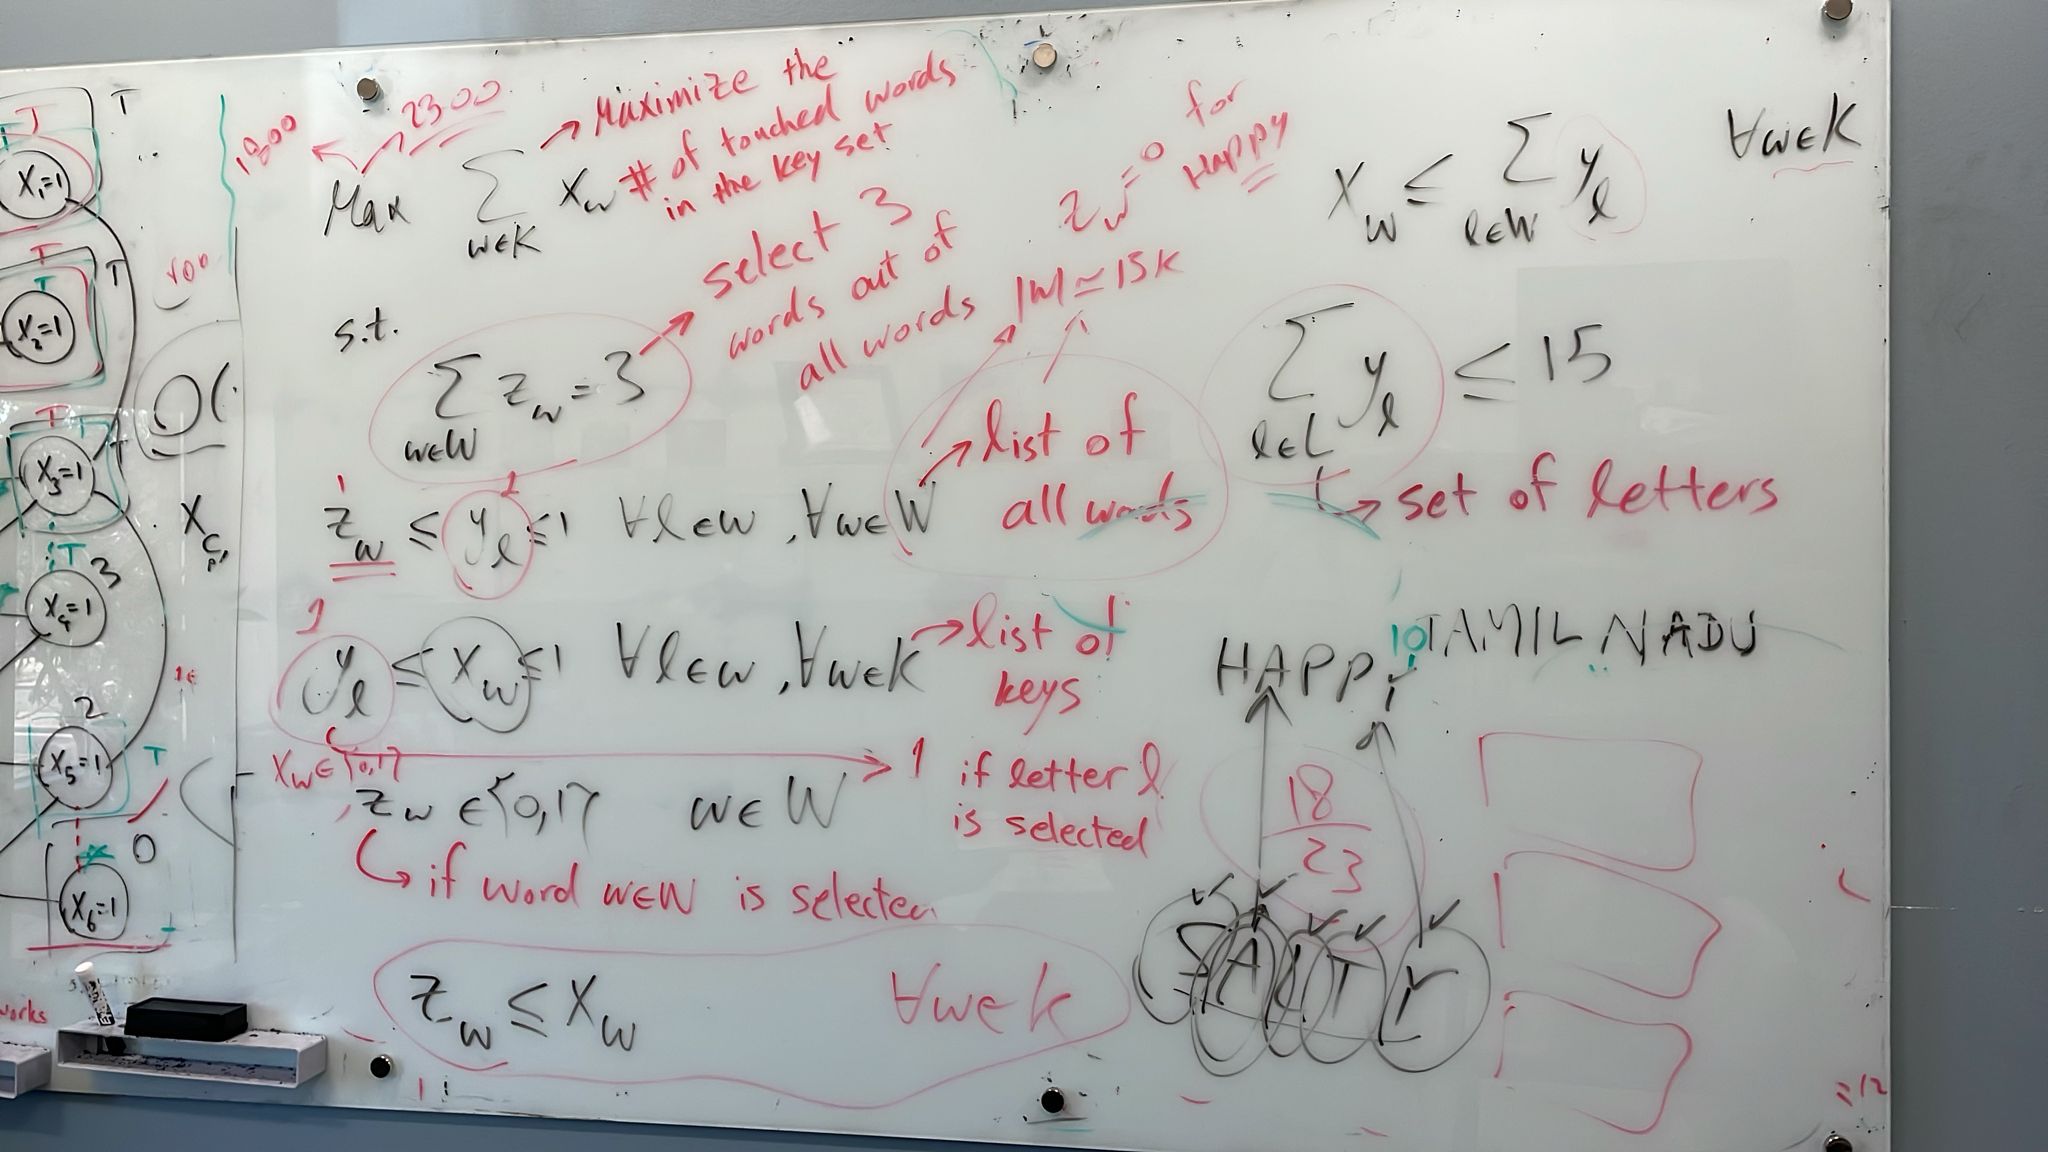 T
J
T
X₁=1
T
T
T
X₂=1
T
T
X₃=1
T
3
X₄=1
2
X₅=1
T
0
X₆=1
works
O(
1800
2300
Max ∑ w∈K x_w
Maximize the
# of touched words
in the key set
s.t.
∑ w∈W z_w = 3
select 3
words out of
all words
|W| ≃ 15K
z_w = 0 for
Happy
1 1
z_w ≤ y_l ≤ 1 ∀l∈w, ∀w∈W
list of
all words
1
y_l ≤ x_w ≤ 1 ∀l∈w, ∀w∈K
list of
keys
x_w ∈ {0,1}
1 if letter l
is selected
z_w ∈ {0,1} w∈W
if word w∈W is selected
z_w ≤ x_w ∀w∈K
x_w ≤ ∑ l∈w y_l ∀w∈K
∑ l∈L y_l ≤ 15
set of letters
10
TAMIL NADU
HAPPY
18
23
SAITY
=12